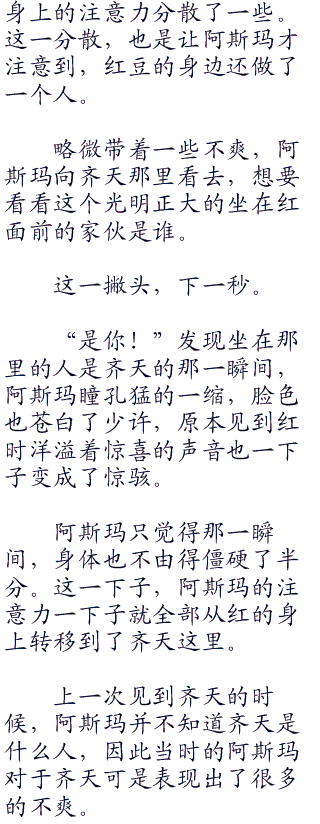 身上的注意力分散了一些。
这一分散，也是让阿斯玛才
注意到，红豆的身边还做了
一个人。
略微带着一些不爽，阿
斯玛向齐天那里看去，想要
看看这个光明正大的坐在红
面前的家伙是谁。
这一撇头，下一秒。
“是你！”发现坐在那
里的人是齐天的那一瞬间，
阿斯玛瞳孔猛的一缩，脸色
也苍白了少许，原本见到红
时洋溢着惊喜的声音也一下
子变成了惊骇。
阿斯玛只觉得那一瞬
间，身体也不由得僵硬了半
分。这一下子，阿斯玛的注
意力一下子就全部从红的身
上转移到了齐天这里。
上一次见到齐天的时
候，阿斯玛并不知道齐天是
什么人，因此当时的阿斯玛
对于齐天可是表现出了很多
的不爽。